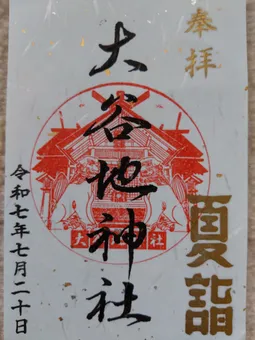 奉拝
夏詣
大谷地神社
大谷地神社
令和七年七月二十日